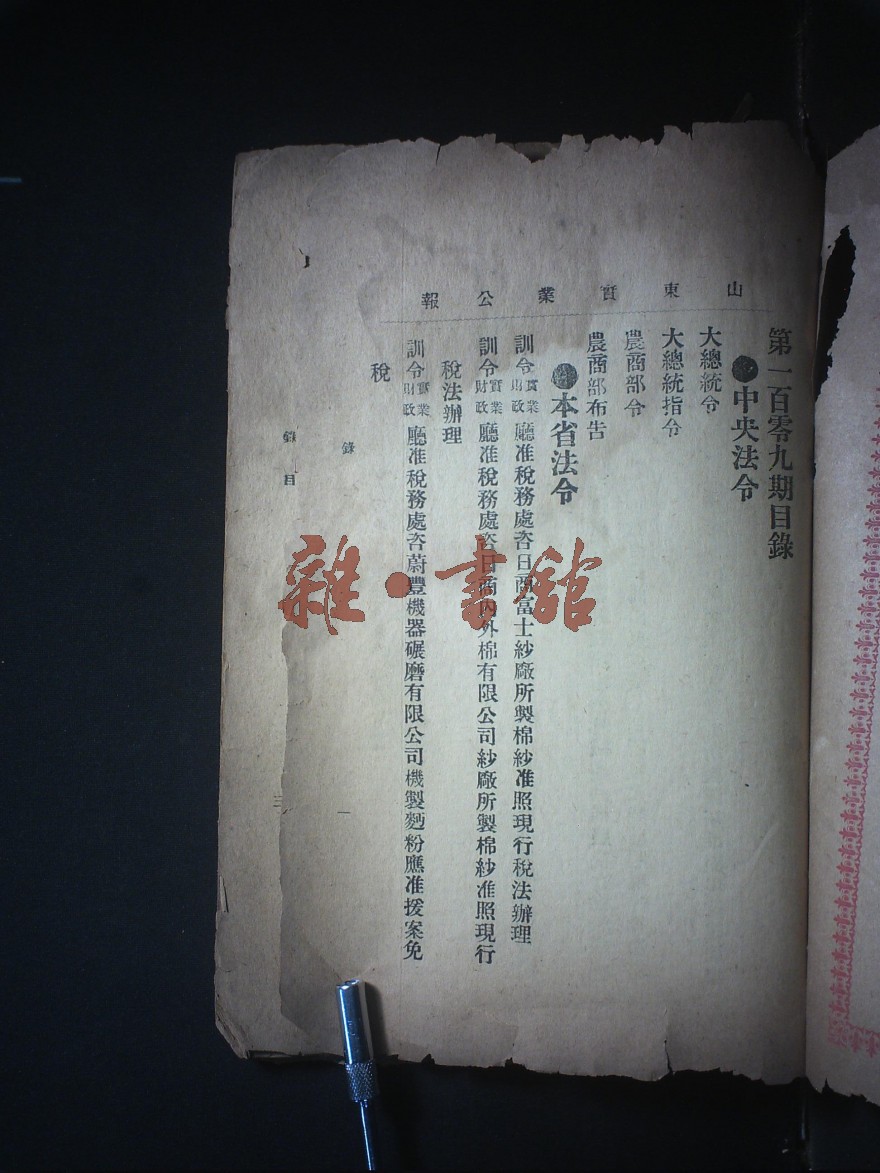 山東實業公報
第一百零九期目錄
●中央法令
大總統令
大總統指令
農商部令
農商部布告
●本省法令
訓令實業財政廳准稅務處咨日商富士紗廠所製棉紗准照現行稅法辦理
訓令實業財政廳准稅務處咨日商內外棉有限公司紗廠所製棉紗准照現行
稅法辦理
訓令實業財政廳准稅務處咨蔚豐機器碾磨有限公司機製麵粉應准援案免
稅
錄
一
錄目
三
雜·書館